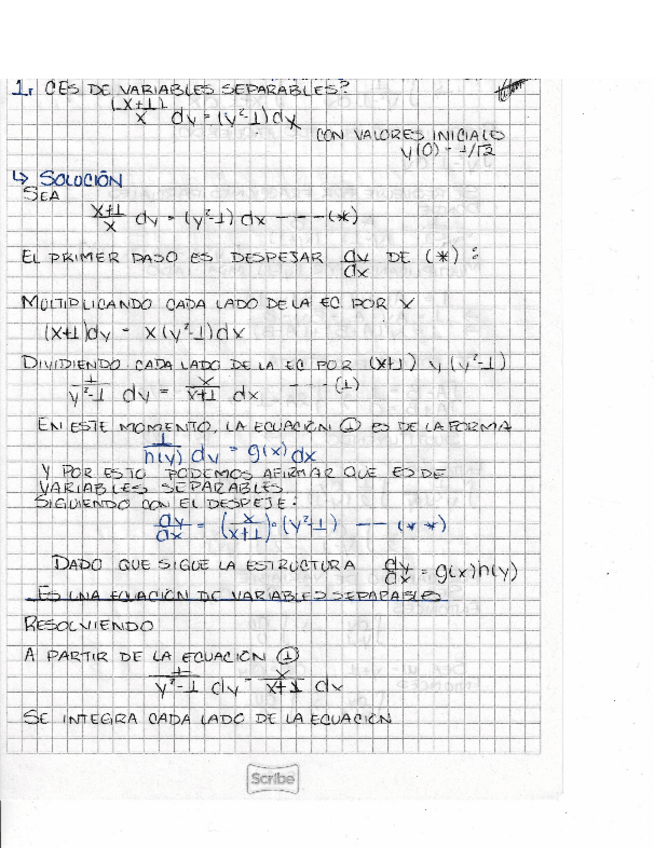 1. ¿ES DE VARIABLES SEPARABLES?
(x+1)/x dy = (y²-1)dx
CON VALORES INICIALES
y(0) = 1/√2
↳ SOLUCIÓN
SEA
x+1/x dy = (y²-1) dx ---(*)
EL PRIMER PASO ES DESPEJAR dy/dx DE (*) :
MULTIPLICANDO CADA LADO DE LA EC POR X
(x+1)dy = x(y²-1)dx
DIVIDIENDO CADA LADO DE LA EC POR (x+1) y (y²-1)
1/y²-1 dy = x/x+1 dx ---(1)
EN ESTE MOMENTO, LA ECUACIÓN ① ES DE LA FORMA
1/h(y) dy = g(x)dx
Y POR ESTO PODEMOS AFIRMAR QUE ES DE
VARIABLES SEPARABLES
SIGUIENDO CON EL DESPEJE:
dy/dx = (x/x+1)·(y²-1) -- (**)
DADO QUE SIGUE LA ESTRUCTURA dy/dx = g(x)h(y)
ES UNA ECUACIÓN DE VARIABLES SEPARABLES
RESOLVIENDO
A PARTIR DE LA ECUACIÓN ①
1/y²-1 dy = x/x+1 dx
SE INTEGRA CADA LADO DE LA ECUACIÓN
Scribe